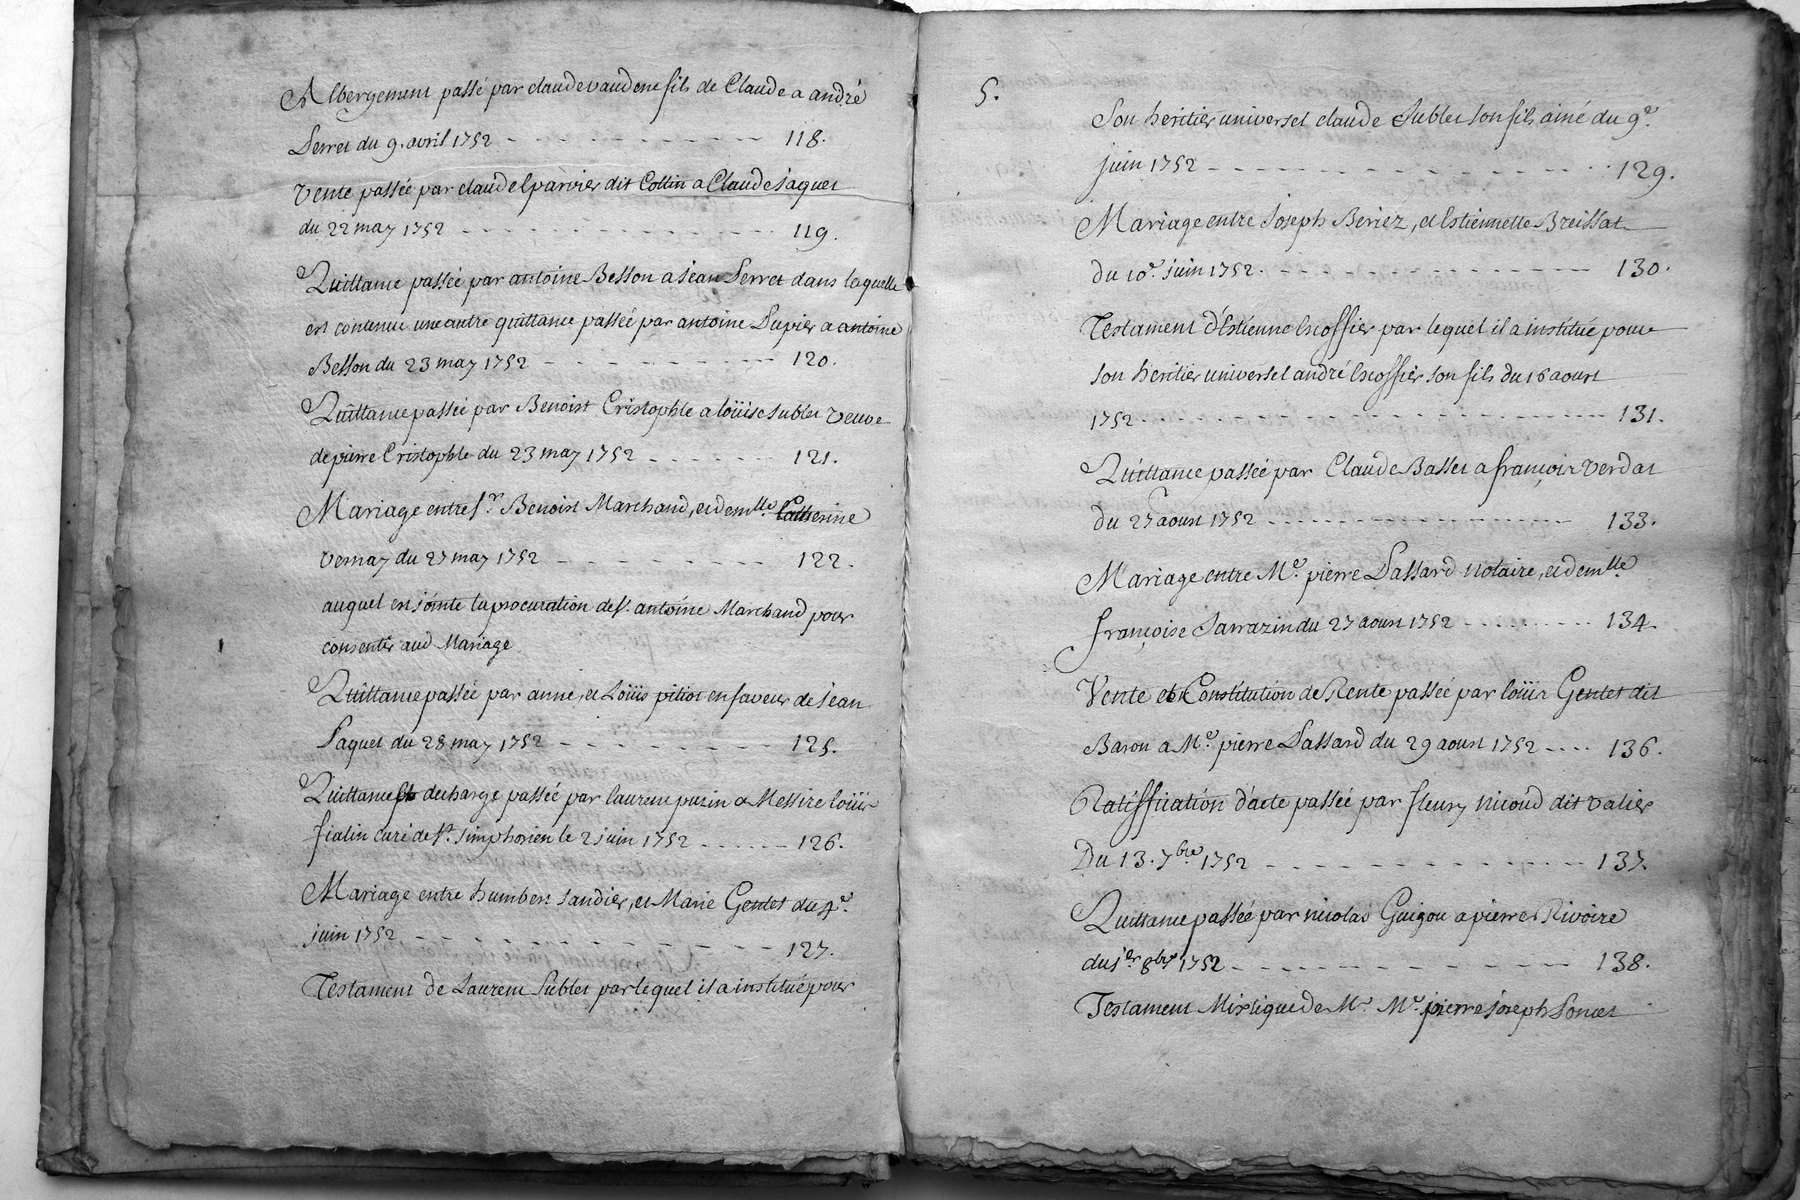 Albergement passé par claude vaudene fils de Claude a andré
Perret du 9. avril 1752 - - - - - - - - - - - 118.
Vente passée par claude Eparvier dit Collin a Claude jaquet
du 22 may 1752 - - - - - - - - - - - - - - 119.
Quittance passée par antoine Besson a jean Perret dans laquelle
est contenue une autre quittance passée par antoine Dupier a antoine
Besson du 23 may 1752 - - - - - - - - - - 120.
Quittance passée par Benoist Cristophle a loüise sublet veuve
de pierre Cristophle du 23 may 1752 - - - - - - 121.
Mariage entre sr. Benoist Marchand, et demlle. Catherine
Vernay du 27 may 1752 - - - - - - - - - 122.
auquel est jointe la procuration de sr. antoine Marchand pour
consentir aud Mariage
Quittance passée par anne, et Loüis pitiot en faveur de jean
Paquet du 28 may 1752 - - - - - - - - - 125.
Quittance et decharge passée par laurent puzin a Messire loüis
fialin curé de st. simphorien le 2 juin 1752 - - - - - - 126.
Mariage entre humbert sandier, et Marie Gentet du 4e.
juin 1752 - - - - - - - - - - - - - - - - 127.
Testament de Laurent Sublet par lequel il a institué pour
5.
Son heritier universel claude Sublet son fils ainé du 9e.
juin 1752 - - - - - - - - - - - - - - - - - - 129.
Mariage entre Joseph Beriez, et Estiennette Breissat
du 10e. juin 1752. - - - - - - - - - - - - - - 130.
Testament d'Estienne Escoffier par lequel il a institué pour
son heritier universel andré Escoffier son fils du 16 aoust
1752 - - - - - - - - - - - - - - - - - - - - - 131.
Quittance passée par Claude Basset a françois Verdat
du 27 aoust 1752 - - - - - - - - - - - - - - - 133.
Mariage entre Me. pierre Dassard notaire, et demlle
françoise Sarrazin du 27 aoust 1752 - - - - - - - - 134.
Vente et Constitution de Rente passée par loüis Gentet dit
Baron a Me. pierre Dassard du 29 aoust 1752 - - - - 136.
Ratiffication d'acte passée par fleury nicoud dit valier
Du 13. 7bre 1752 - - - - - - - - - - - - - - - 137.
Quittance passée par nicolas Guigou a pierre Rivoire
du 1er 8bre 1752 - - - - - - - - - - - - - - - 138.
Testament Mistique de Mr. Me. pierre joseph Poncet